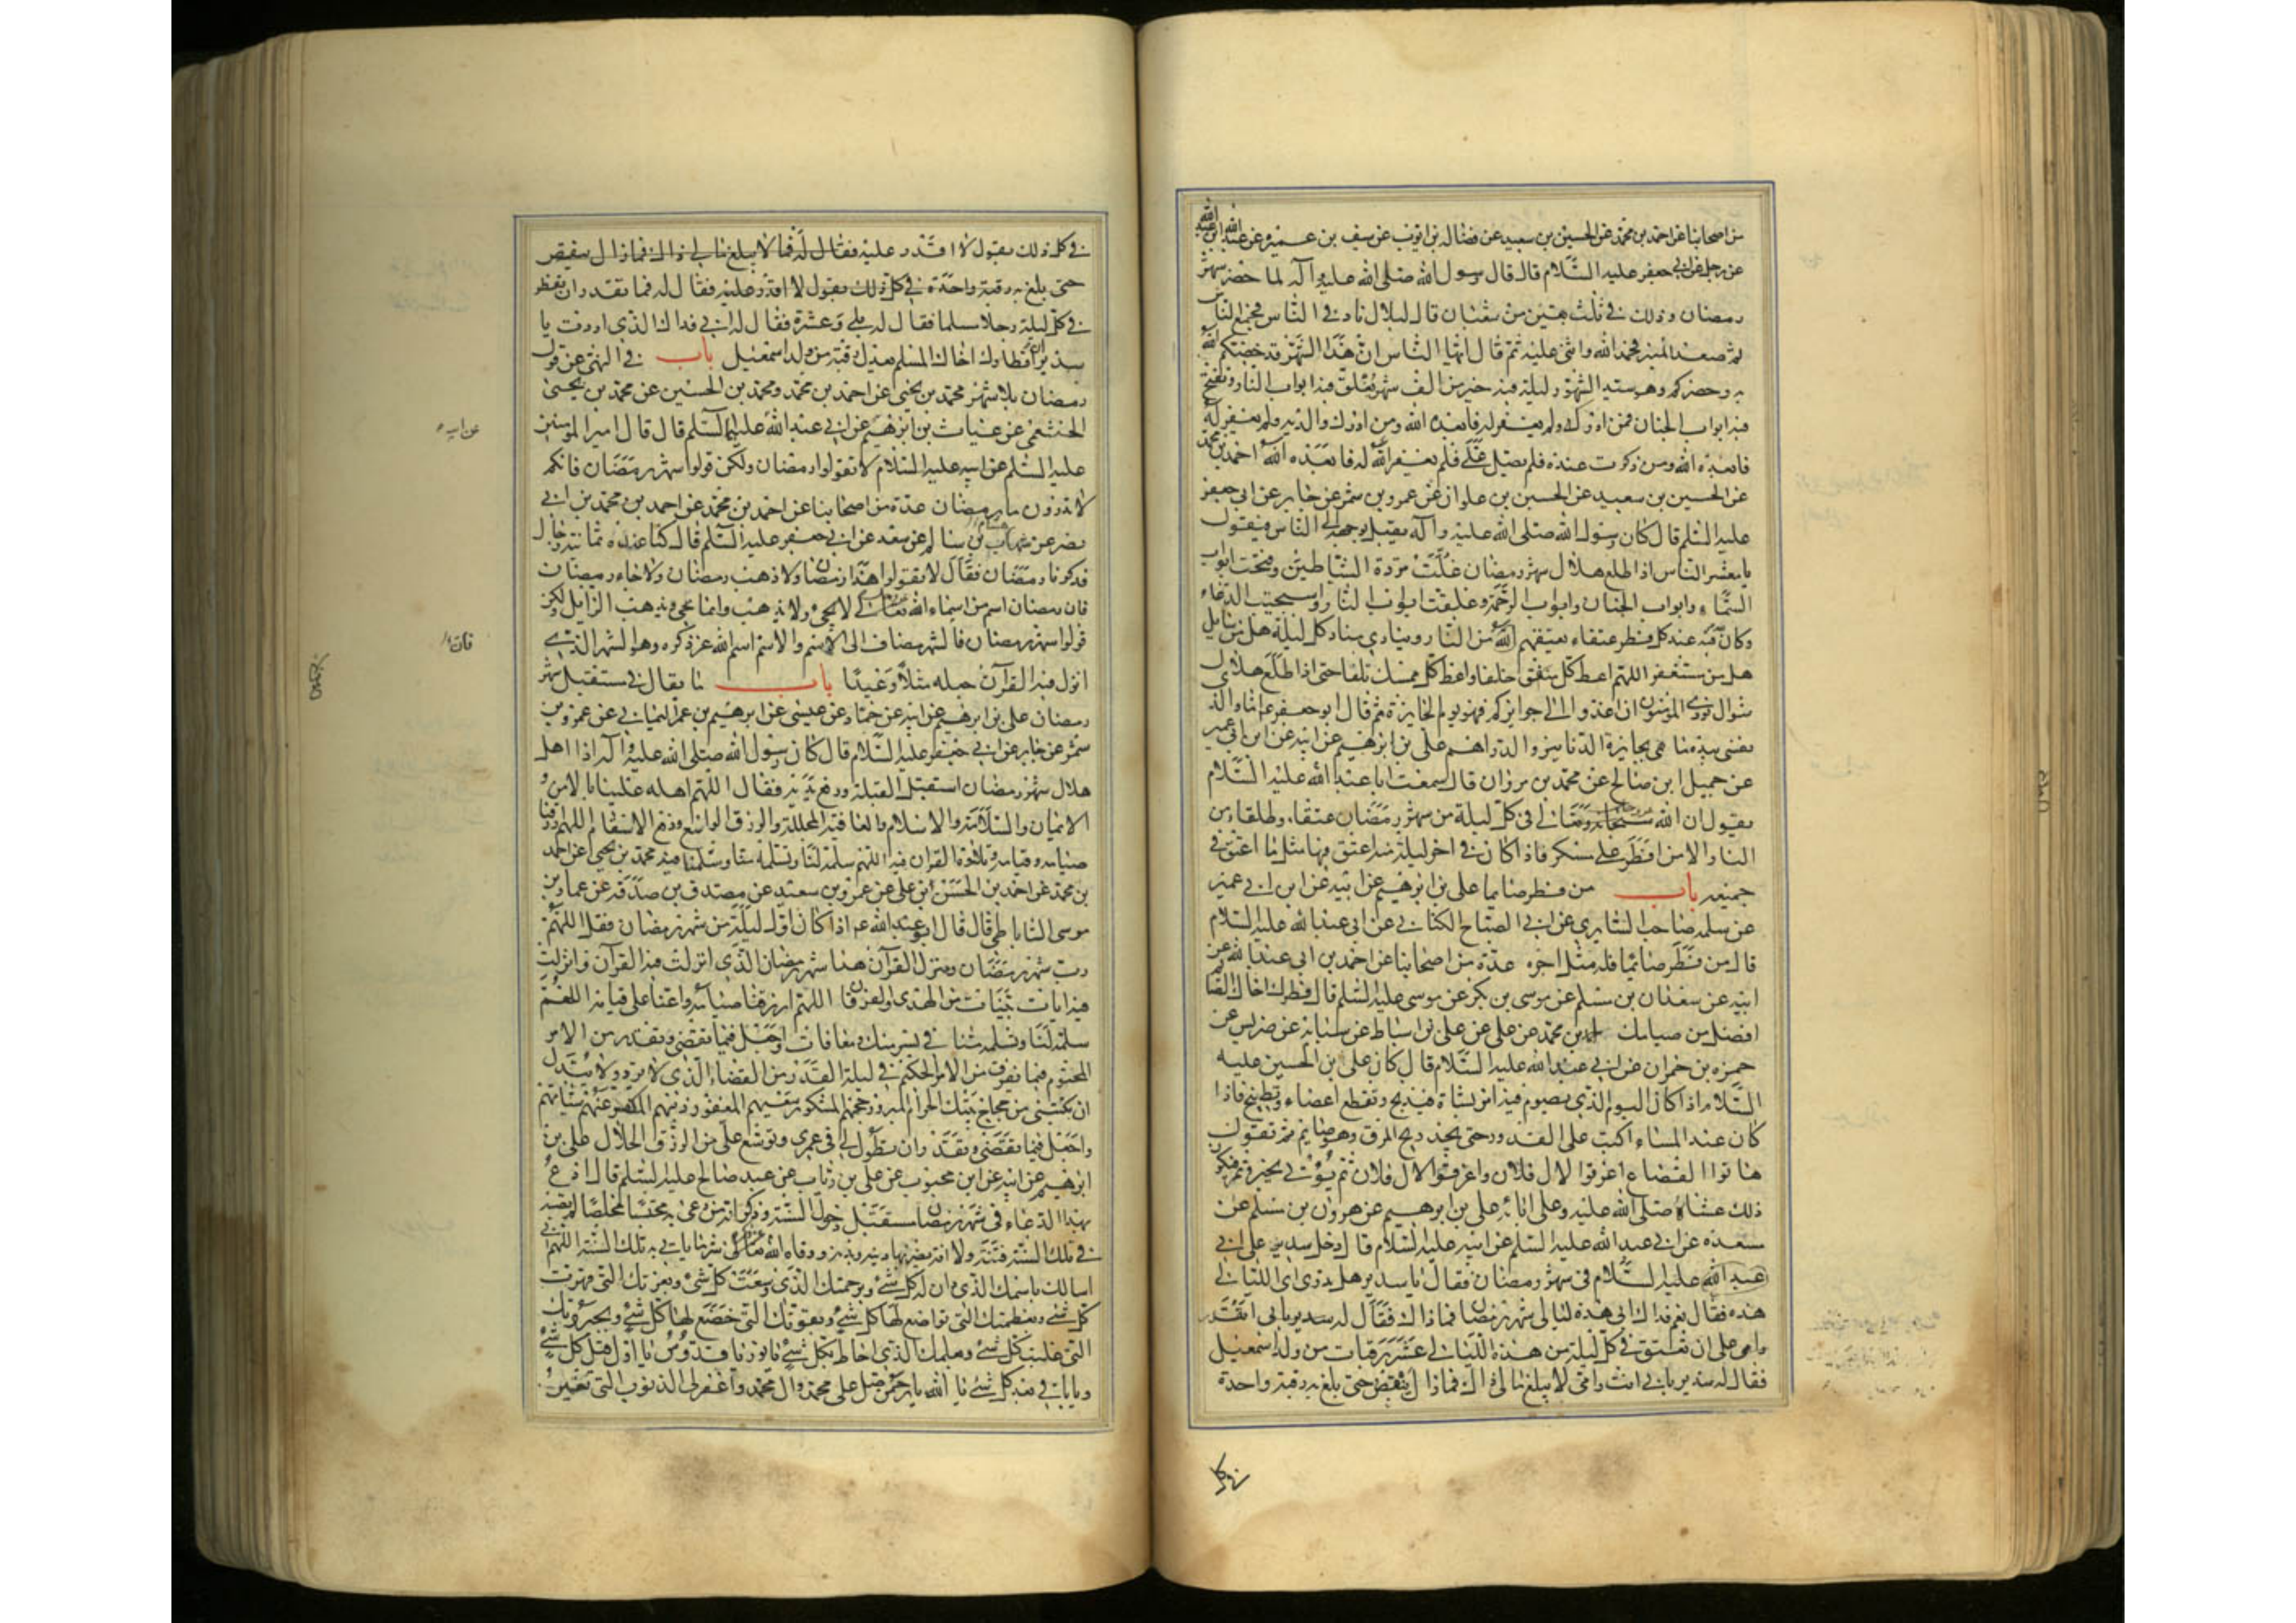 من اصحابنا عن احمد بن محمد عن الحسين بن سعيد عن فضالة بن ايوب عن سيف بن عميرة عن عبد الله ابن عبد الله
عن رجل عن ابي جعفر عليه السلام قال قال رسول الله صلى الله عليه وآله لما حضر شهر
رمضان وذلك في ثلث بقين من شعبان قال لبلال ناد في الناس فجمع الناس
ثم صعد المنبر فحمد الله واثنى عليه ثم قال ايها الناس ان هذا الشهر قد خصكم الله
به وحضركم وهو سيد الشهور ليلة فيه خير من الف شهر تغلق فيه ابواب النار وتفتح
فيه ابواب الجنان فمن ادركه ولم يغفر له فابعده الله ومن ادرك والديه ولم يغفر له
فابعده الله ومن ذكرت عنده فلم يصل علي فلم يغفر الله له فابعده الله احمد بن محمد
عن الحسين بن سعيد عن الحسين بن علوان عن عمرو بن شمر عن جابر عن ابي جعفر
عليه السلم قال كان رسول الله صلى الله عليه وآله يقبل بوجهه الى الناس فيقول
يا معشر الناس اذا طلع هلال شهر رمضان غلت مردة الشياطين وفتحت ابواب
السماء وابواب الجنان وابواب الرحمة وغلقت ابواب النار واستجيب الدعاء
وكان لله فيه عند كل فطر عتقاء يعتقهم الله من النار وينادي مناد كل ليلة هل من سايل
هل من مستغفر اللهم اعط كل منفق خلفا واعط كل ممسك تلفا حتى اذا طلع هلال
شوال نودي المؤمنون ان اغدوا الى جوايزكم فهو يوم الجايزة ثم قال ابو جعفر ع اما والذي
نفسي بيده ما هي بجايزة الدنانير والدراهم علي بن ابرهيم عن ابيه عن ابن ابي عمير
عن جميل ابن صالح عن محمد بن مروان قال سمعت ابا عبد الله عليه السلام
يقول ان الله سبحانه وتعالى في كل ليلة من شهر رمضان عتقاء وطلقاء من
النار الا من افطر على مسكر فاذا كان في اخر ليلة منه اعتق فيها مثل ما اعتق في
جميعه باب من فطر صايما علي بن ابرهيم عن ابيه عن ابن ابي عمير
عن سلمة صاحب السابري عن ابي الصباح الكناني عن ابي عبد الله عليه السلام
قال من فطر صائما فله مثل اجره عدة من اصحابنا عن احمد بن ابي عبد الله عن
ابيه عن سعدان بن مسلم عن موسى بن بكر عن موسى عليه السلم قال فطرك اخاك الصائم
افضل من صيامك احمد بن محمد عن علي عن علي بن اسباط عن سيابة عن ضريس عن
حمزه بن حمران عن ابي عبد الله عليه السلام قال كان علي بن الحسين عليه
السلام اذا كان اليوم الذي يصوم فيه امر بشاة فتذبح وتقطع اعضاء وتطبخ فاذا
كان عند المساء اكب على القدور حتى يجد ريح المرق وهو صايم ثم يقول
هاتوا القصاع اغرفوا لال فلان واغرفوا لال فلان ثم يؤتى بخبز وتمر فيكون
ذلك عشاؤه صلى الله عليه وعلى ابائه علي بن ابرهيم عن هرون بن مسلم عن
مسعده عن ابي عبد الله عليه السلم عن ابيه عليه السلام قال دخل سدير على ابي
عبد الله عليه السلام في شهر رمضان فقال يا سدير هل تدري اي الليالي
هذه فقال نعم فداك ابي هذه ليالي شهر رمضان فماذاك فقال له سدير بابي اتقدر
وامي على ان تعتق في كل ليلة من هذه الليالي عشر رقبات من ولد اسمعيل
فقال له سدير بابي انت وامي لا يبلغ مالي ذاك فمازال ينقص حتى بلغ به رقبة واحدة
في كل ذلك يقول لا اقدر عليه فقال له فما لا يبلغ مالي ذاك فمازال ينقص
حتى بلغ به رقبة واحدة في كل ذلك يقول لا اقدر عليه فقال له فما تقدر ان تفطر
في كل ليلة رجلا مسلما فقال له بلى وعشرة فقال له ابي فذاك الذي اردت يا
سدير ان افطارك اخاك المسلم يعدل رقبة من ولد اسمعيل باب في النهي عن قول
رمضان بلا شهر محمد بن يحيى عن احمد بن محمد ومحمد بن الحسين عن محمد بن يحيى
الخثعمي عن غياث بن ابرهيم عن ابي عبد الله عليهما السلم قال قال امير المومنين
عن ابيه
عليه السلم عن ابيه عليه السلام لا تقولوا رمضان ولكن قولوا شهر رمضان فانكم
لا تدرون ما رمضان عدة من اصحابنا عن احمد بن محمد عن احمد بن محمد بن ابي
نصر عن هشام بن سالم عن سعد عن ابي جعفر عليه السلم قال كنا عنده ثمانية رجال
فذكرنا رمضان فقال لا تقولوا هذا رمضان ولا ذهب رمضان ولا جاء رمضان
فان رمضان اسم من اسماء الله تعالى لا يجيء ولا يذهب وانما يجيء ويذهب الزايل ولكن
قولوا شهر رمضان فالشهر مضاف الى الاسم والاسم اسم الله عز ذكره وهو الشهر الذي
انزل فيه القرآن جعله مثلا وعيدا باب ما يقال في مستقبل شهر
رمضان علي بن ابرهيم عن ابيه عن حماد عن عيسى عن ابرهيم بن عمر اليماني عن عمرو بن
شمر عن جابر عن ابي جعفر عليه السلام قال كان رسول الله صلى الله عليه وآله اذا اهل
هلال شهر رمضان استقبل القبلة ورفع يديه فقال اللهم اهله علينا بالامن و
الايمان والسلامة والاسلام والعافية المجللة والرزق الواسع ودفع الاسقام اللهم ارزقنا
صيامه وقيامه وتلاوة القران فيه اللهم سلمه لنا وتسلمه منا وسلمنا فيه محمد بن يحيى عن احمد
بن محمد عن احمد بن الحسن ابن علي عن عمرو بن سعيد عن مصدق بن صدقة عن عمار بن
موسى الساباطي قال قال ابو عبد الله ع اذا كان اول ليلة من شهر رمضان فقل اللهم
رب شهر رمضان ومنزل القرآن هذا شهر رمضان الذي انزلت فيه القرآن وانزلت
فيه ايات بينات من الهدى والفرقان اللهم ارزقنا صيامه واعنا على قيامه اللهم
سلمه لنا وتسلمه منا في يسر منك ومعافات واجعل فيما تقضي وتقدر من الامر
المحتوم فيما تفرق من الامر الحكيم في ليلة القدر من القضاء الذي لا يرد ولا يبدل
ان تكتبني من حجاج بيتك الحرام المبرور حجهم المشكور سعيهم المغفور ذنبهم المكفر عنهم سيئاتهم
واجعل فيما تقضي وتقدر ان تطول لي في عمري وتوسع علي من الرزق الحلال علي بن
ابرهيم عن ابيه عن ابن محبوب عن علي بن رئاب عن عبد صالح عليه السلم قال ادع
بهذا الدعاء في شهر رمضان مستقبل دخول السنة وذكر انه من دعى به محتسبا مخلصا لم تصبه
في تلك السنة فتنة ولا افة يضر بها دينه وبدنه ووقاه الله تعالى شر ما ياتي به تلك السنة اللهم اني
اسالك باسمك الذي دان له كل شيء وبرحمتك الذي وسعت كل شيء وبعزتك التي قهرت
كل شيء وبعظمتك التي تواضع لها كل شيء وبقوتك التي خضع لها كل شيء وبجبروتك
التي غلبت كل شيء وبعلمك الذي احاط بكل شيء يا نور يا قدوس يا اول قبل كل شيء
ويا باقي بعد كل شيء يا الله يا رحمن صل على محمد وال محمد واغفر لي الذنوب التي تغير